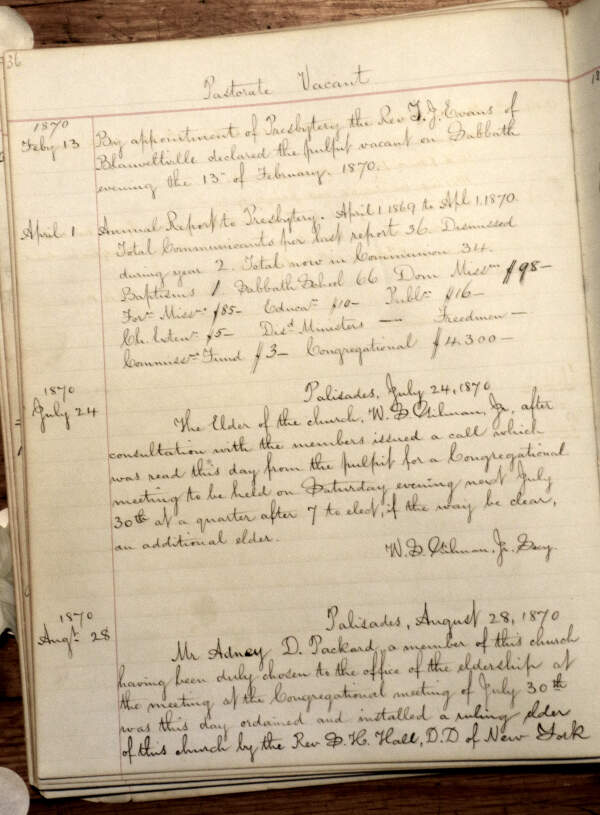 36
Pastorate Vacant
1870
Feby 13 By appointment of Presbytery the Rev T. J. Evans of
Blauveltville declared the pulpit vacant on Sabbath
evening the 13th of February. 1870.
April 1 Annual Report to Presbytery. April 1 1869 to Apl 1, 1870.
Total Communicants per last report 36. Dismissed
during year 2. Total now in Communion 34.
Baptisms 1. Sabbath School 66 Dom Missns $98—
For Missns $85— Educan $10— Publn $16—
Ch. Exten $5— Disd Ministers — Freedmen —
Commissrs Fund $3— Congregational $4,300—
1870
Palisades, July 24, 1870
July 24 The Elder of the church, W. S. Gilman, Jr, after
consultation with the members issued a call which
was read this day from the pulpit for a Congregational
meeting to be held on Saturday evening next July
30th at a quarter after 7 to elect, if the way be clear,
an additional elder.
W. S. Gilman, Jr. Secy.
1870
Palisades, August 28, 1870
Augt 28 Mr Adney D. Packard, a member of this church
having been duly chosen to the office of the eldership at
the meeting at the Congregational meeting of July 30th
was this day ordained and installed a ruling elder
of this church by the Rev S. H. Hall, D.D of New York